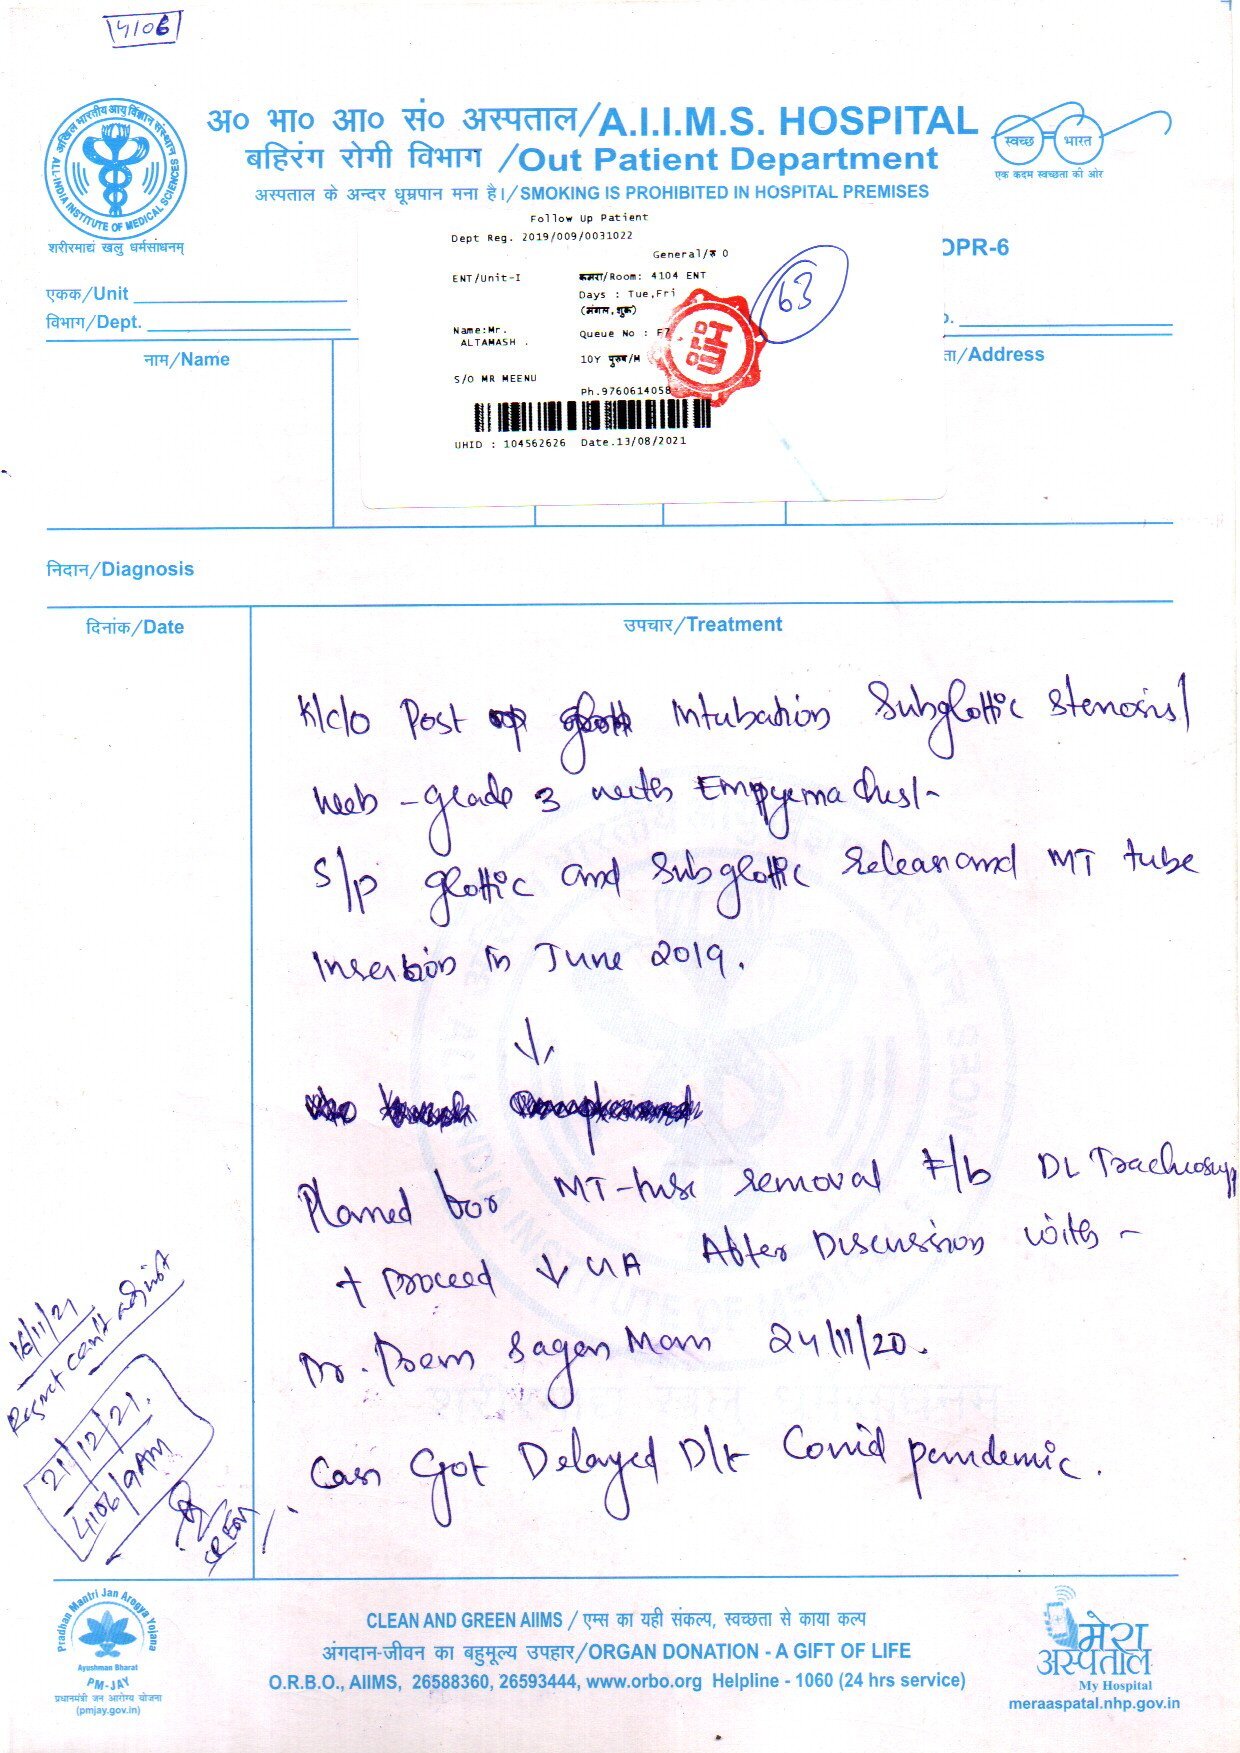 4106
अ० भा० आ० सं० अस्पताल/A.I.I.M.S. HOSPITAL
बहिरंग रोगी विभाग /Out Patient Department
अस्पताल के अन्दर धूम्रपान मना है।/SMOKING IS PROHIBITED IN HOSPITAL PREMISES
अखिल भारतीय आयुर्विज्ञान संस्थान
ALL-INDIA INSTITUTE OF MEDICAL SCIENCES
शरीरमाद्यं खलु धर्मसाधनम्
स्वच्छ भारत
एक कदम स्वच्छता की ओर
OPR-6
Follow Up Patient
Dept Reg. 2019/009/0031022
General/रु 0
ENT/Unit-I
कमरा/Room: 4104 ENT
Days : Tue,Fri
(मंगल,शुक्र)
Name:Mr.
ALTAMASH .
Queue No : F7
10Y पुरुष/M
S/O MR MEENU
Ph.9760614058
UHID : 104562626 Date.13/08/2021
63
एकक/Unit
विभाग/Dept.
नाम/Name
ता/Address
निदान/Diagnosis
दिनांक/Date
उपचार/Treatment
K/c/o Post Intubation Subglottic Stenosis/
Web - grade 3 with Empyema Chest-
S/p glottic and Subglottic release and MT tube
Insertion in June 2019.
↓
Planned for MT-tube removal F/b DL Tracheoscopy
+ Proceed ↓ GA After Discussion with -
Dr. Prem Sagar Mam 24/11/20.
Case Got Delayed D/t Covid pandemic.
16/11/21
Regret can't adjust
21/12/21.
4106/9AM
SR ENT
Pradhan Mantri Jan Arogya Yojana
Ayushman Bharat
PM-JAY
प्रधानमंत्री जन आरोग्य योजना
(pmjay.gov.in)
CLEAN AND GREEN AIIMS / एम्स का यही संकल्प, स्वच्छता से काया कल्प
अंगदान-जीवन का बहुमूल्य उपहार/ORGAN DONATION - A GIFT OF LIFE
O.R.B.O., AIIMS, 26588360, 26593444, www.orbo.org Helpline - 1060 (24 hrs service)
मेरा
अस्पताल
My Hospital
meraaspatal.nhp.gov.in